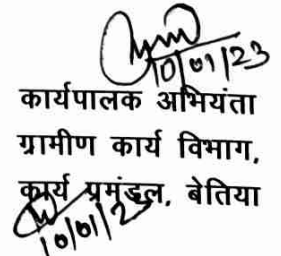 10/01/23
कार्यपालक अभियंता
ग्रामीण कार्य विभाग,
कार्य प्रमंडल, बेतिया
10/01/23